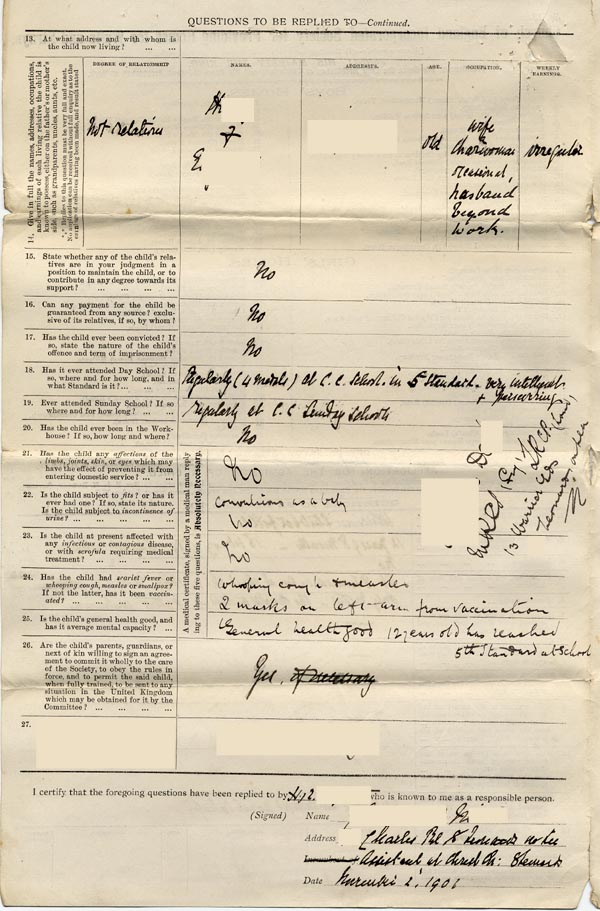 QUESTIONS TO BE REPLIED TO—Continued.
13. At what address and with whom is
the child now living? ... ...
14. Give in full the names, addresses, occupations,
and earnings of each living relative the child is
known to possess, either on the father's or mother's
side, such as grandparents, uncles, aunts, etc.
*** Replies to this question must be very full and exact.
No application can be received without full enquiry as to the
means of relatives having been made, and result stated
DEGREE OF RELATIONSHIP
NAMES.
ADDRESSES.
AGE.
OCCUPATION.
WEEKLY
EARNINGS.
Not relations
E
"
old
wife
Charwoman
occasional,
husband
beyond
work.
irregular
15. State whether any of the child's rela-
tives are in your judgment in a
position to maintain the child, or to
contribute in any degree towards its
support? ... ... ... ...
No
16. Can any payment for the child be
guaranteed from any source? exclu-
sive of its relatives, if so, by whom?
No
17. Has the child ever been convicted? If
so, state the nature of the child's
offence and term of imprisonment?
No
18. Has it ever attended Day School? If
so, where and for how long, and in
what Standard is it? ... ... ...
Regularly (4 medals) at C. C. School. in 5 Standard - very intelligent
+ persevering
19. Ever attended Sunday School? If so
where and for how long? ... ...
regularly at C. C. Sunday Schools
20. Has the child ever been in the Work-
house? If so, how long and where?
No
A medical certificate, signed by a medical man reply
ing to these five questions, is Absolutely Necessary.
21. Has the child any affections of the
limbs, joints, skin, or eyes which may
have the effect of preventing it from
entering domestic service? ... ...
No
22. Is the child subject to fits? or has it
ever had one? If so, state its nature.
Is the child subject to incontinence of
urine? ... ... ... ...
convulsions as a baby
No
23. Is the child at present affected with
any infectious or contagious disease,
or with scrofula requiring medical
treatment? ... ... ... ...
No
24. Has the child had scarlet fever or
whooping cough, measles or smallpox?
If not the latter, has it been vaccin-
ated? ... ... ... ...
whooping cough & measles
2 marks on left arm from vaccination
25. Is the child's general health good, and
has it average mental capacity? ...
General health good 12 years old has reached
5th Standard at School
MRCS Eng LRCP Lond,
13 Warrior Gds
26. Are the child's parents, guardians, or
next of kin willing to sign an agree-
ment to commit it wholly to the care
of the Society, to obey the rules in
force, and to permit the said child,
when fully trained, to be sent to any
situation in the United Kingdom
which may be obtained for it by the
Committee? ... ... ... ...
Yes, if necessary
27.
I certify that the foregoing questions have been replied to by
who is known to me as a responsible person.
(Signed) Name
Address Charles Rd St Leonards on Sea
Assistant at Christ Ch: St Leonards
Date November 2, 1901